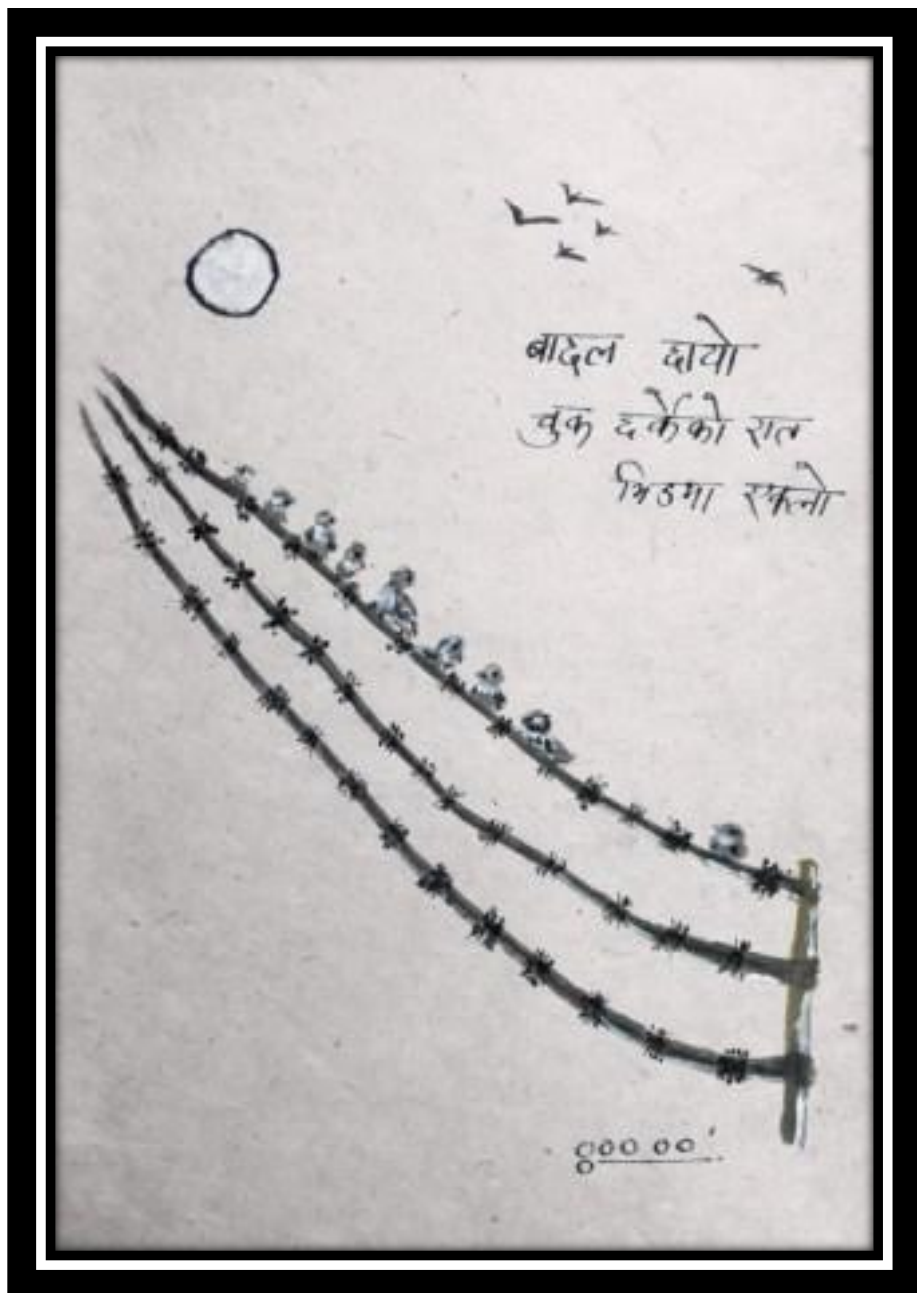 बादल छायो
चुक दर्केको रात
भिडमा एक्लो